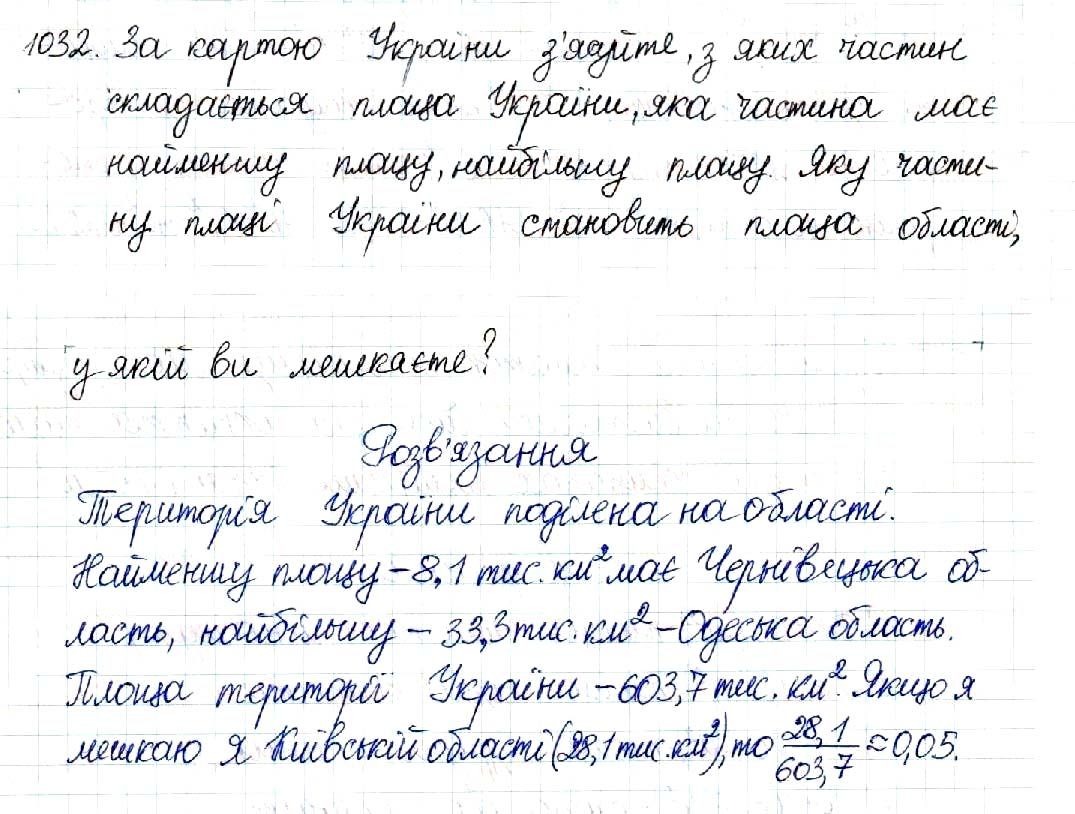 1032. За картою України з'ясуйте, з яких частин
складається площа України, яка частина має
найменшу площу, найбільшу площу. Яку части-
ну площі України становить площа області,
у якій ви мешкаєте?
Розв'язання
Територія України поділена на області.
Найменшу площу – 8,1 тис. км² має Чернівецька об-
ласть, найбільшу – 33,3 тис. км² – Одеська область.
Площа території України – 603,7 тис. км². Якщо я
мешкаю я Київській області (28,1 тис. км²), то 28,1/603,7 ≈ 0,05.